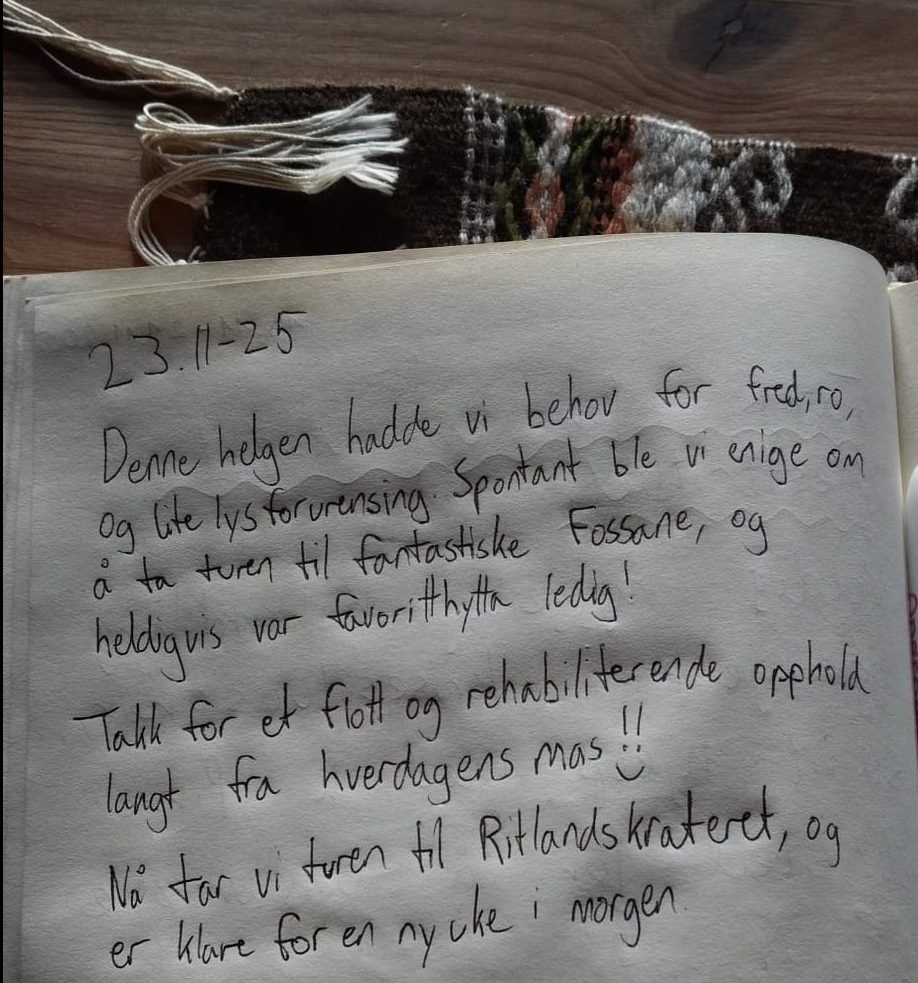 23.11-25
Denne helgen hadde vi behov for fred, ro,
og lite lysforurensing. Spontant ble vi enige om
å ta turen til fantastiske Fossane, og
heldigvis var favoritthytta ledig!
Takk for et flott og rehabiliterende opphold
langt fra hverdagens mas!!
Nå tar vi turen til Ritlandskrateret, og
er klare for en ny uke i morgen.